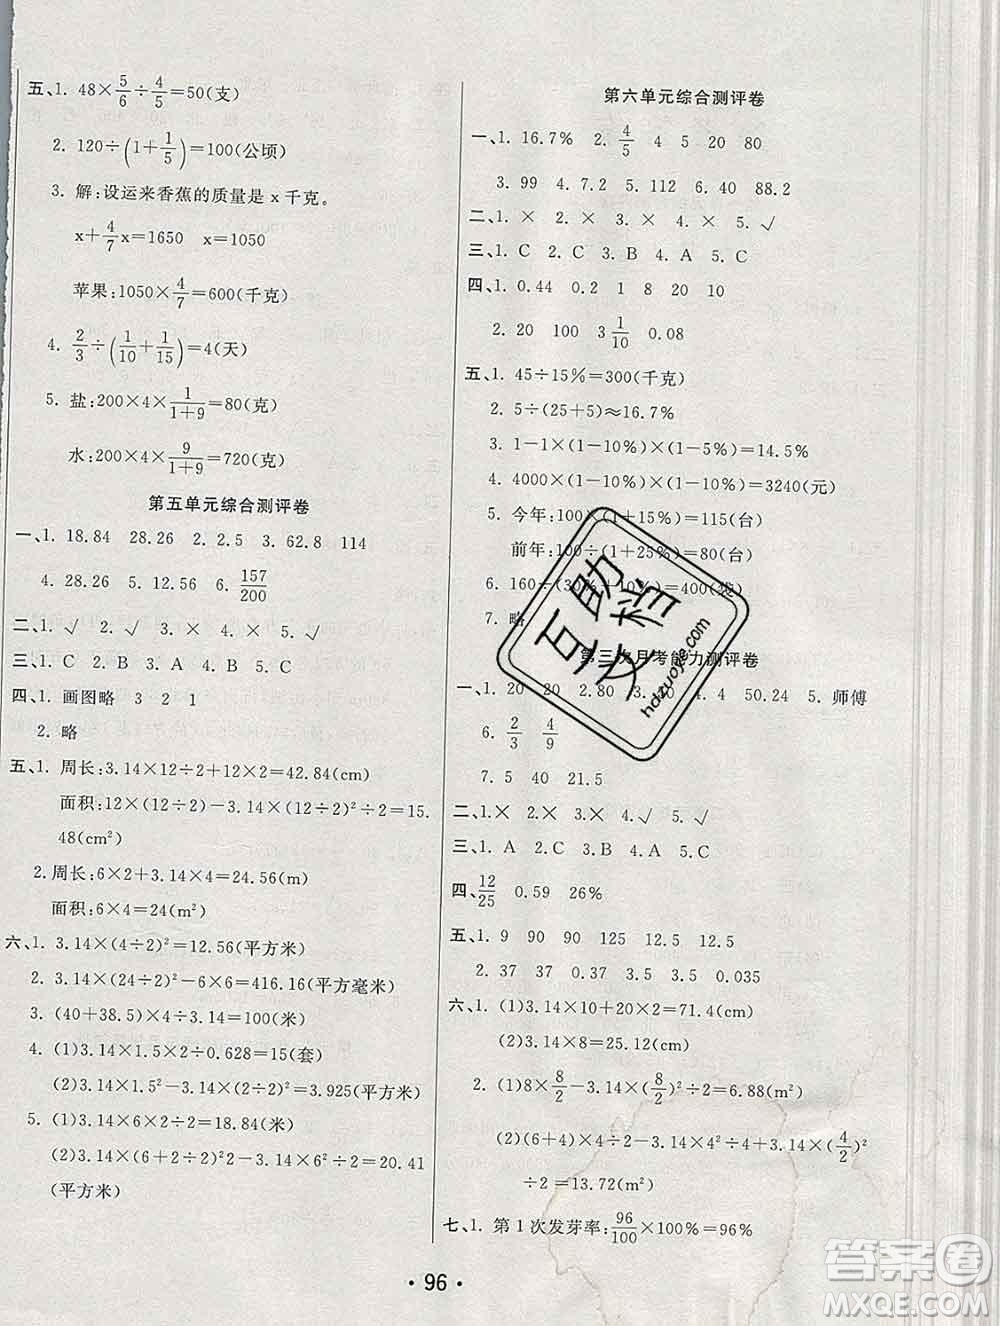 五、1. 48×5/6÷4/5=50(支)
2. 120÷(1+1/5)=100(公顷)
3. 解:设运来香蕉的质量是 x 千克。
x+4/7x=1650 x=1050
苹果:1050×4/7=600(千克)
4. 2/3÷(1/10+1/15)=4(天)
5. 盐:200×4×1/(1+9)=80(克)
水:200×4×9/(1+9)=720(克)
第五单元综合测评卷
一、1. 18.84 28.26 2. 2.5 3. 62.8 114
4. 28.26 5. 12.56 6. 157/200
二、1. √ 2. √ 3. × 4. × 5. √
三、1. C 2. B 3. A 4. C 5. B
四、1. 画图略 3 2 1
2. 略
五、1. 周长:3.14×12÷2+12×2=42.84(cm)
面积:12×(12÷2)-3.14×(12÷2)²÷2=15.
48(cm²)
2. 周长:3.14×4+6×2=24.56(m)
面积:6×4=24(m²)
六、1. 3.14×(4÷2)²=12.56(平方米)
2. 3.14×(24÷2)²-6×6=416.16(平方毫米)
3. (40+38.5)×4÷3.14=100(米)
4. (1)3.14×1.5×2÷0.628=15(套)
(2)3.14×1.5²-3.14×(2÷2)²=3.925(平方米)
5. (1)3.14×6×2÷2=18.84(米)
(2)3.14×(6+1)²÷2-3.14×6²÷2=20.41
(平方米)
第六单元综合测评卷
一、1. 16.7% 2. 4/5 4 5 20 80
3. 99 4. 7.2 5. 112 6. 40 88.2
二、1. × 2. × 3. × 4. × 5. √
三、1. C 2. C 3. B 4. A 5. C
四、1. 0.44 0.2 1 8 20 10
2. 20 100 3 1/10 0.08
五、1. 45÷15%=300(千克)
2. 5÷(25+5)≈16.7%
3. 1-1×(1-10%)×(1-5%)=14.5%
4. 4000×(1-10%)×(1-10%)=3240(元)
5. 今年:100×(1+15%)=115(台)
前年:100÷(1+25%)=80(台)
6. 160÷(30%+10%)=400(
7. 略
第三次月考能力测评卷
一、1. 20 20 2. 80 4. 4 50.24 5. 师傅
6. 2/3 4/9
7. 5 40 21.5
二、1. × 2. × 3. × 4. √ 5. √
三、1. A 2. C 3. B 4. A 5. C
四、12/25 0.59 26%
五、1. 9 90 90 125 12.5 12.5
2. 37 37 0.37 3.5 3.5 0.035
六、1. (1)3.14×10+20×2=71.4(cm)
(2)3.14×8=25.12(cm)
2. (1)8×8/2-3.14×(8/2)²÷2=6.88(m²)
(2)(6+4)×4÷2-3.14×4²÷4+3.14×(4/2)²
÷2=13.72(m²)
七、1. 第 1 次发芽率:96/100×100%=96%
· 96 ·
互助文档
hdzuoje.com
答案圈
MXQE.COM